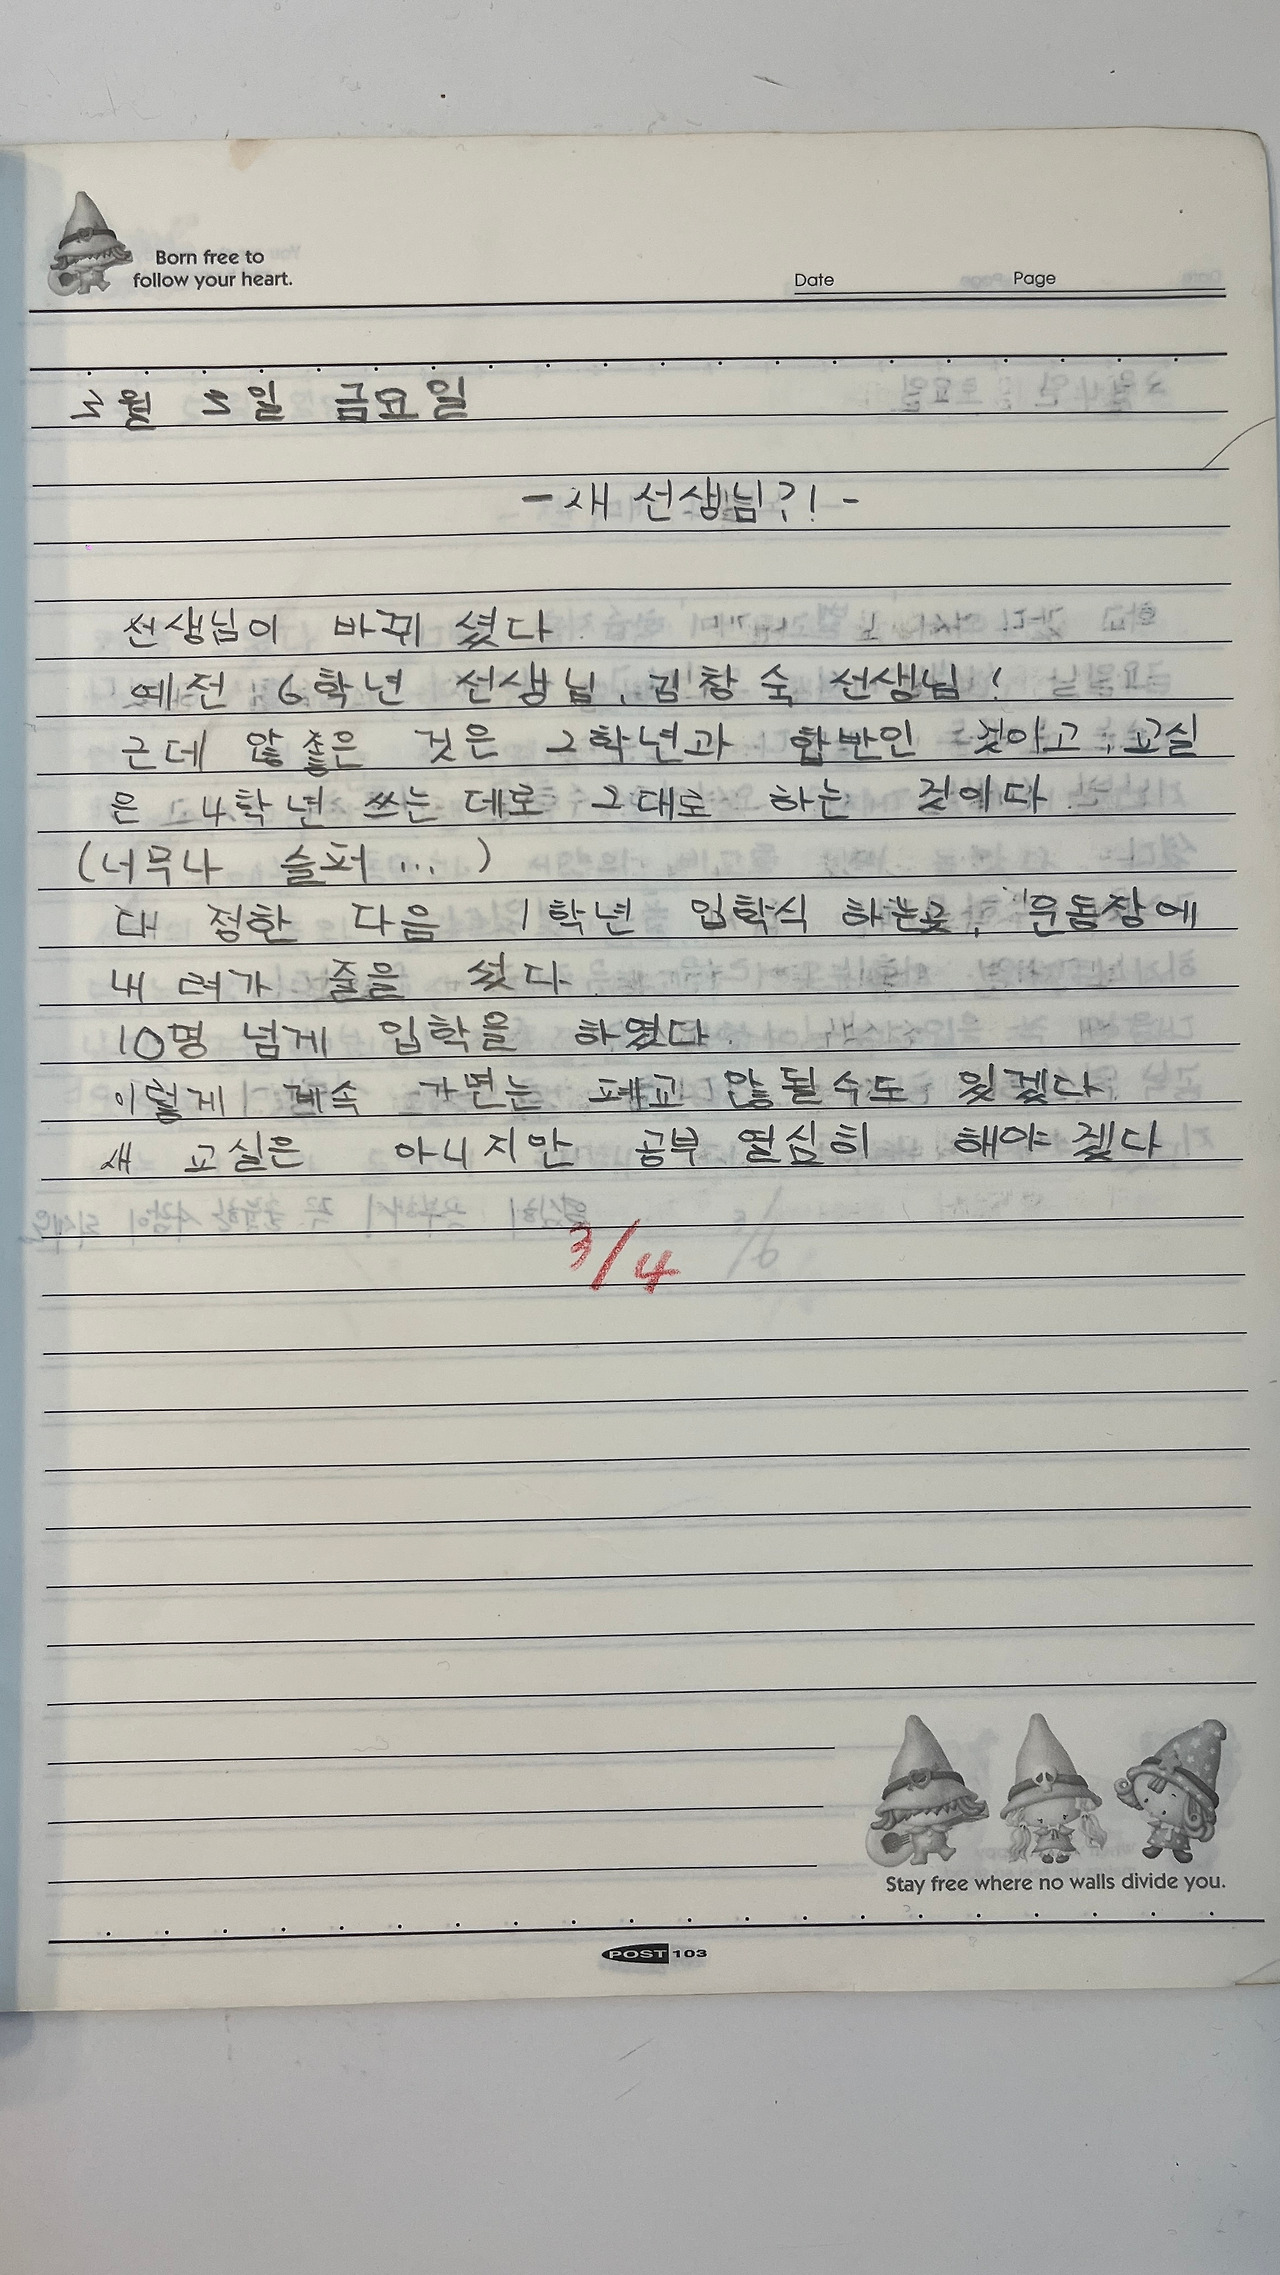 Born free to
follow your heart.
Date Page
3월 3일 금요일
- 새 선생님?! -
선생님이 바뀌 셨다.
예전 6학년 선생님, 김창숙 선생님!
근데 않좋은 것은 2학년과 합반인 것이고, 교실
은 4학년 쓰는 데로 그대로 하는 것이다.
(너무나 슬퍼...)
대 정한 다음 1학년 입학식 하는곳, 운동장에
내 려가 줄을 섰다.
10명 넘게 입학을 하였다.
이렇게 계속 가면는 폐교 않될수도 있겠다.
새 교실은 아니지만 공부 열심히 해야겠다
3/4
Stay free where no walls divide you.
POST 103